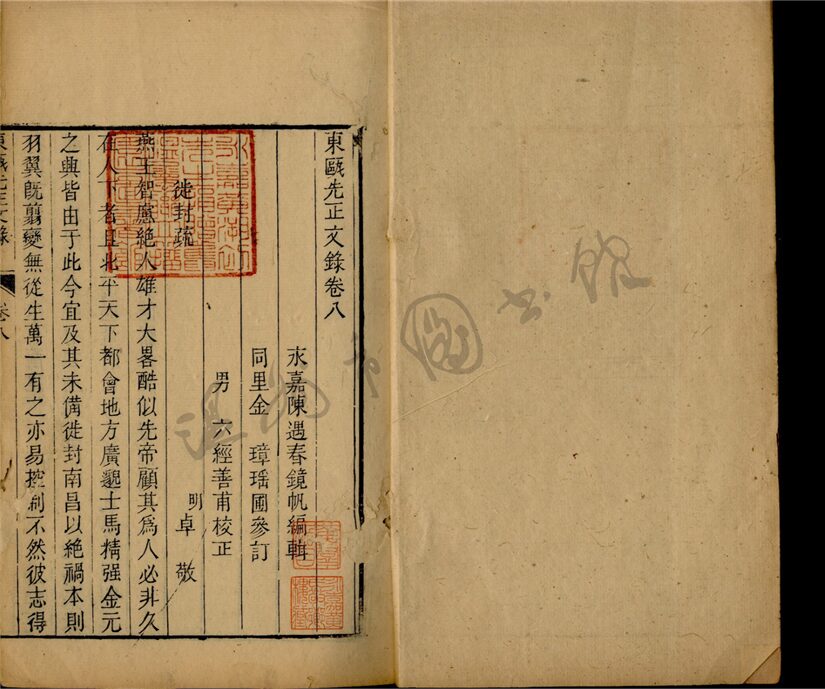 東甌先正文錄卷八
永嘉陳遇春鏡帆編輯
同里金璋瑶圃參訂
男六經善甫校正
徙封疏
明卓敬
燕王智慮絕人雄才大畧酷似先帝顧其爲人必非久
在人下者且北平天下都會地方廣邈士馬精强金元
之典皆由于此今宜及其未備徙封南昌以絕禍本則
羽翼既翦變無從生萬一有之亦易控制不然彼志得
東甌先正文錄
卷八
溫州市圖書館